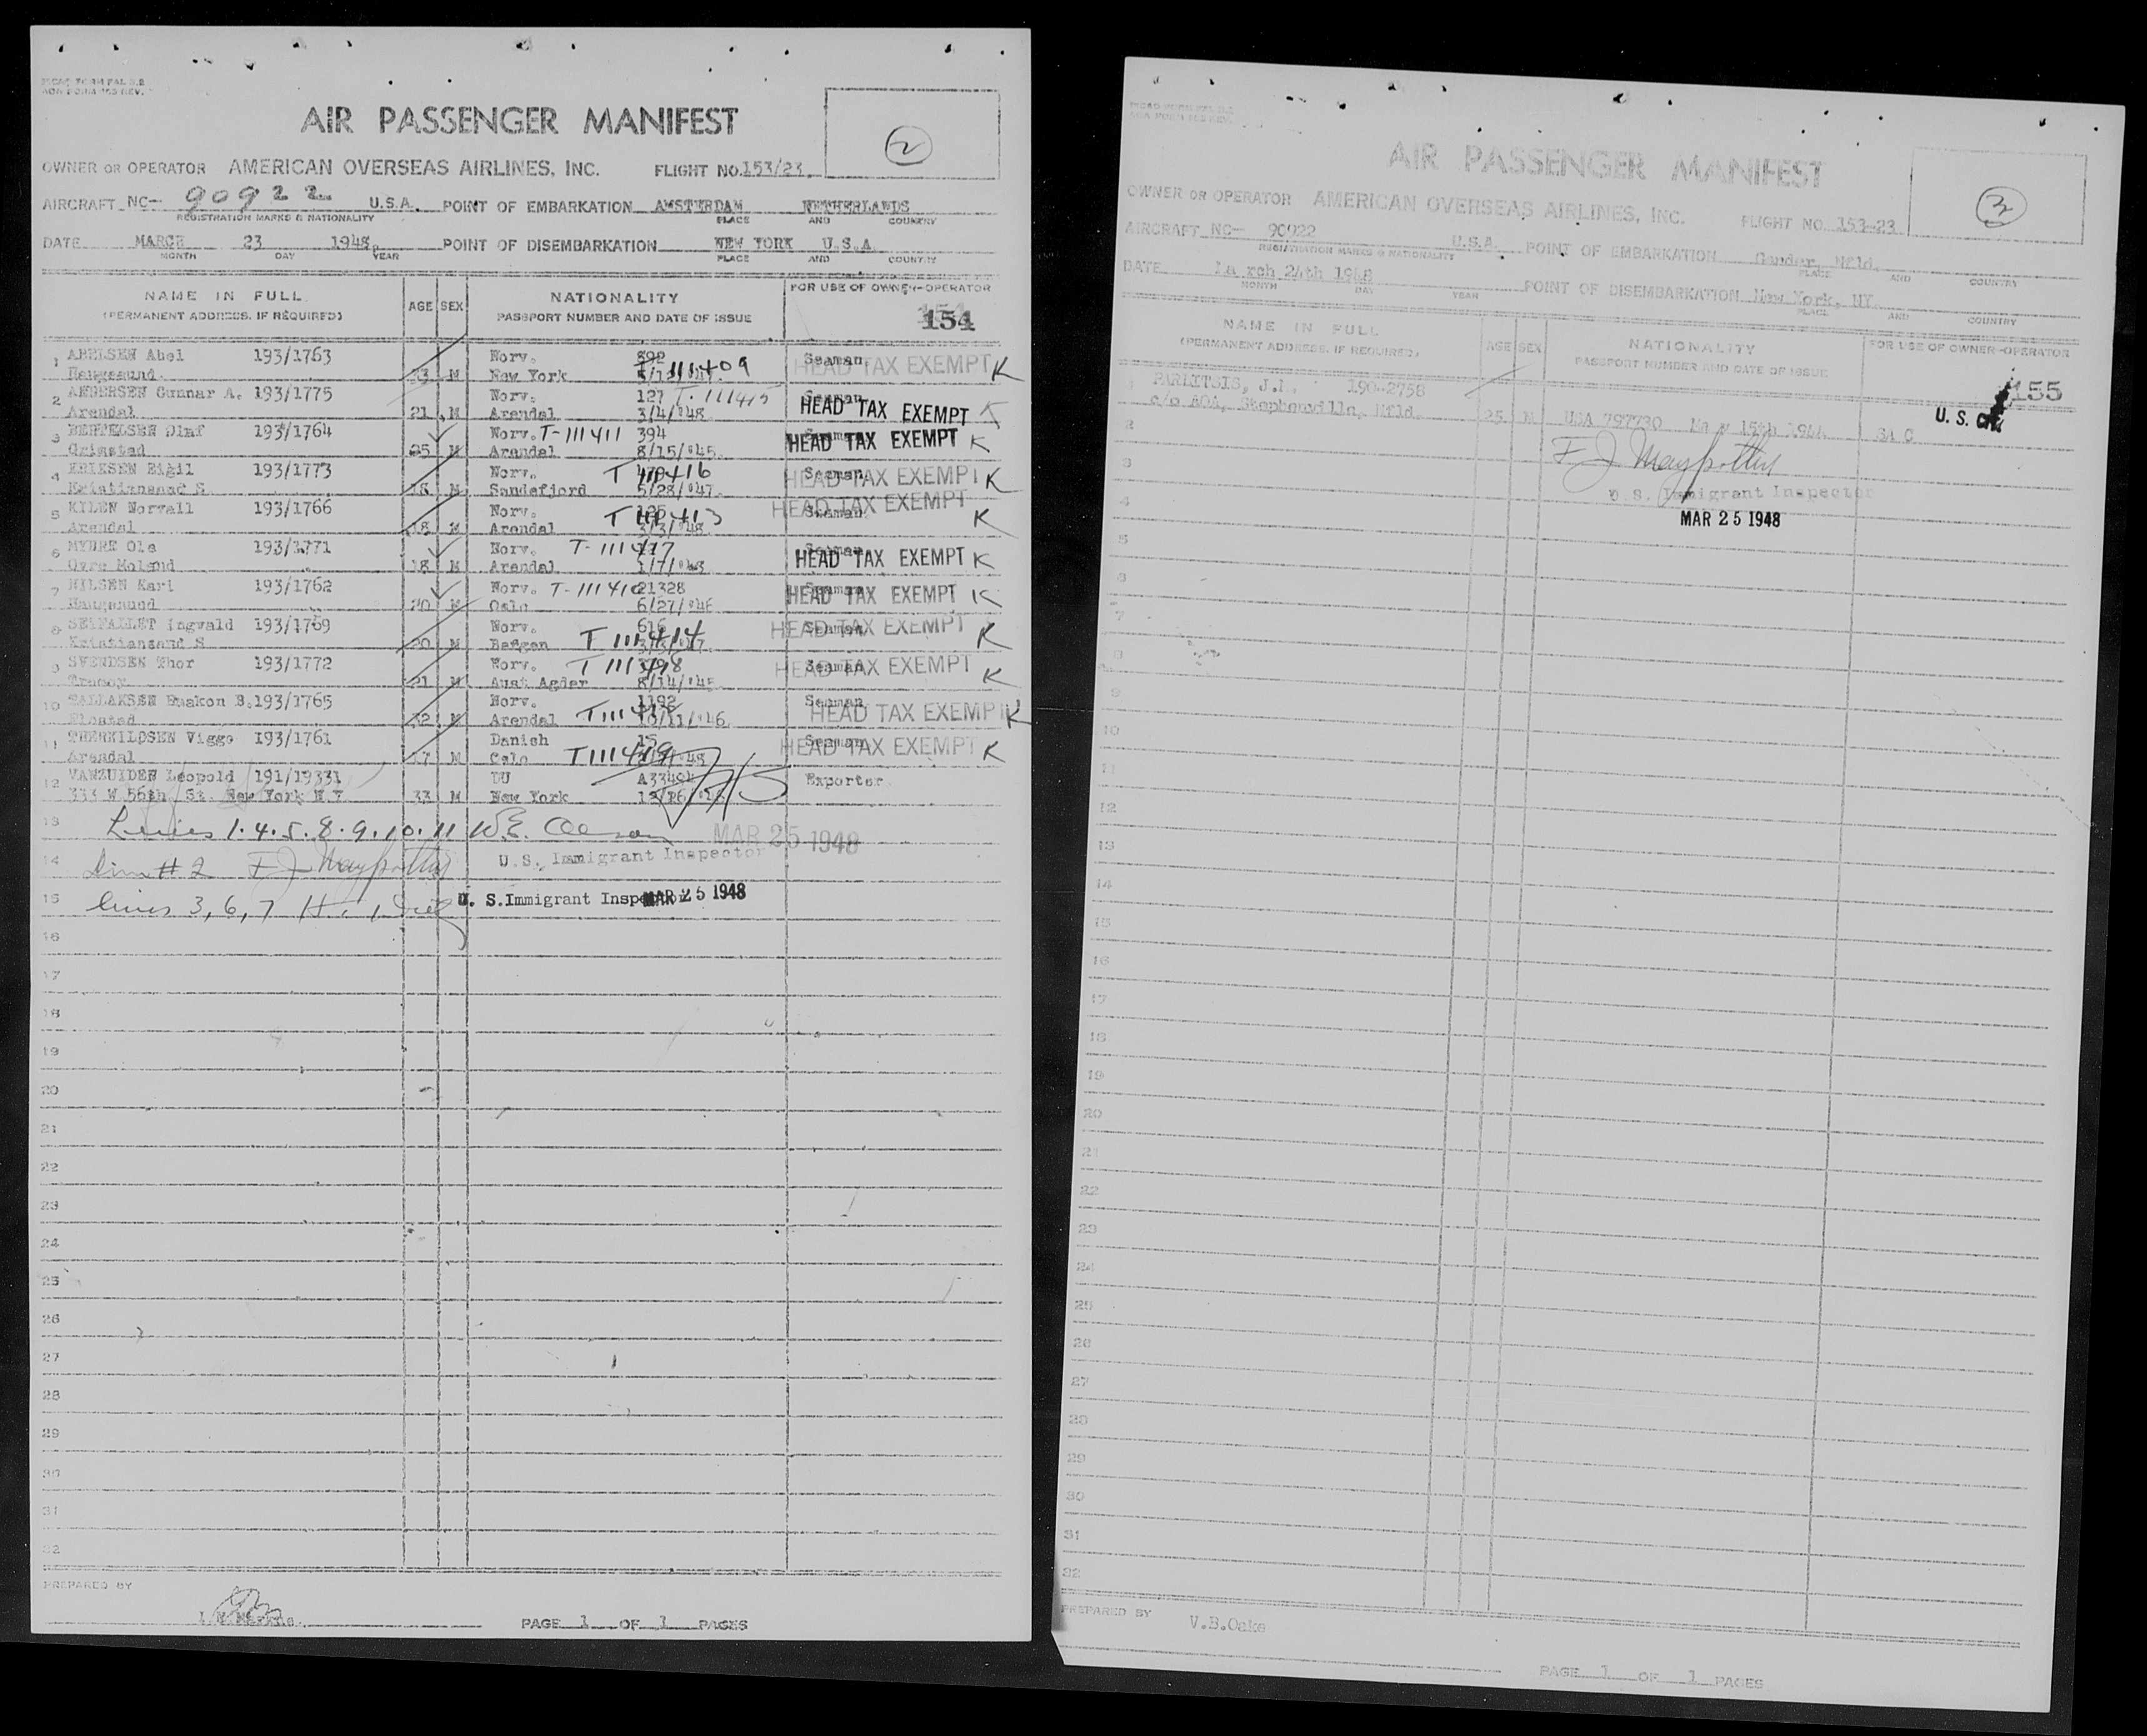 AIR PASSENGER MANIFEST
2
OWNER OR OPERATOR AMERICAN OVERSEAS AIRLINES, INC. FLIGHT NO. 153/23
AIRCRAFT NC- 90922 U.S.A. POINT OF EMBARKATION AMSTERDAM NETHERLANDS
REGISTRATION MARKS & NATIONALITY PLACE AND COUNTRY
DATE MARCH 23 1948 POINT OF DISEMBARKATION NEW YORK U.S.A
MONTH DAY YEAR PLACE AND COUNTRY
NAME IN FULL AGE SEX NATIONALITY FOR USE OF OWNER-OPERATOR
(PERMANENT ADDRESS. IF REQUIRED) PASSPORT NUMBER AND DATE OF ISSUE 154
1 ABELSEN Abel 193/1763 Norv. 892 Seaman
Haugesund M New York T 111409 HEAD TAX EXEMPT K
2 ANDERSEN Gunnar A. 193/1775 Norv. 127 T-111415 Seaman
Arendal 21 M Arendal 3/4/'48 HEAD TAX EXEMPT K
3 BERTELSEN Olaf 193/1764 Norv. T-111411 394 Seaman
Grimstad 25 M Arendal 8/15/'45 HEAD TAX EXEMPT K
4 ERIKSEN Egil 193/1773 Norv. T 111416 Seaman
Kristiansand S 18 M Sandefjord 5/28/'47 HEAD TAX EXEMPT K
5 KYLEN Norvall 193/1766 Norv. T 111413 Seaman
Arendal 18 M Arendal 3/3/'48 HEAD TAX EXEMPT K
6 MYHRE Ole 193/1771 Norv. T-111417 Seaman
18 M Arendal 1/7/'48 HEAD TAX EXEMPT K
7 NILSEN Karl 193/1762 Norv. T-111410 21328 Seaman
Haugesund 20 M Oslo 6/27/'46 HEAD TAX EXEMPT K
8 Ingvald 193/1769 Norv. 616 Seaman
Kristiansand S 20 M Bergen T 111414 HEAD TAX EXEMPT K
9 SVENDSEN Thor 193/1772 Norv. T 111418 Seaman
Tromoy 21 M Aust Agder 8/14/'45 HEAD TAX EXEMPT K
10 TALLAKSEN Haakon B. 193/1765 Norv. 1192 Seaman
32 M Arendal 10/11/'46 HEAD TAX EXEMPT K
11 THERKILDSEN Viggo 193/1761 Danish 15 Seaman
Arendal 17 M Oslo T111419 HEAD TAX EXEMPT K
12 VANZUIDEN Leopold 191/19331 DU Exporter
333 W 56th St. New York N Y 33 M New York
13 Lines 1.4.5.8.9.10.11 W.E. MAR 25 1948
14 Line # 2 F J U.S. Immigrant Inspector
15 lines 3, 6, 7 U. S. Immigrant Inspector MAR 25 1948
16
17
18
19
20
21
22
23
24
25
26
27
28
29
30
31
32
PREPARED BY
PAGE 1 OF 1 PAGES
AIR PASSENGER MANIFEST
3
OWNER OR OPERATOR AMERICAN OVERSEAS AIRLINES, INC. FLIGHT NO. 153-23
AIRCRAFT NC- 90922 U.S.A. POINT OF EMBARKATION Gander, Nfld.
REGISTRATION MARKS & NATIONALITY PLACE AND COUNTRY
DATE March 24th 1948 POINT OF DISEMBARKATION New York, NY.
MONTH DAY YEAR PLACE AND COUNTRY
NAME IN FULL AGE SEX NATIONALITY FOR USE OF OWNER-OPERATOR
(PERMANENT ADDRESS. IF REQUIRED) PASSPORT NUMBER AND DATE OF ISSUE
1 J.I. 190-2758 155
c/o AOA, Stephenville, Nfld. 25 M USA 797730 15th U. S. Cit
2
3 F J
4 U.S. Immigrant Inspector
MAR 25 1948
5
6
7
8
9
10
11
12
13
14
15
16
17
18
19
20
21
22
23
24
25
26
27
28
29
30
31
32
PREPARED BY V.B.Oake
PAGE 1 OF 1 PAGES